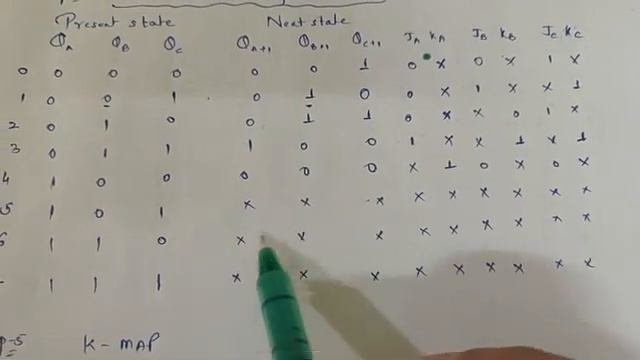 Present state Next state
Q_A Q_B Q_C Q_A+1 Q_B+1 Q_C+1 J_A K_A J_B K_B J_C K_C
0 0 0 0 0 0 1 0 x 0 x 1 x
1 0 0 1 0 1 0 0 x 1 x x 1
2 0 1 0 0 1 1 0 x x 0 1 x
3 0 1 1 1 0 0 1 x x 1 x 1
4 1 0 0 0 0 0 x 1 0 x 0 x
5 1 0 1 x x x x x x x x x
6 1 1 0 x x x x x x x x x
1 1 1 x x x x x x x x x
p-5 K-MAP